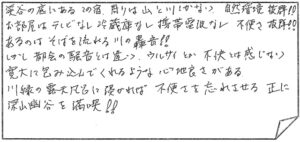 渓谷の底にある この宿 周りは山と川しかない 自然環境 抜群!!
お部屋は テレビなし 冷蔵庫なし 携帯電波なし 不便さ 抜群!!
あるのは そばを流れる川の轟音!!
しかし 都会の騒音とは違って ウルサイとか 不快とは感じない
寛大に包み込んでくれるような 心地良さがある
川縁の露天風呂に浸かれば 不便さを忘れさせる 正に
深山幽谷を満喫!!